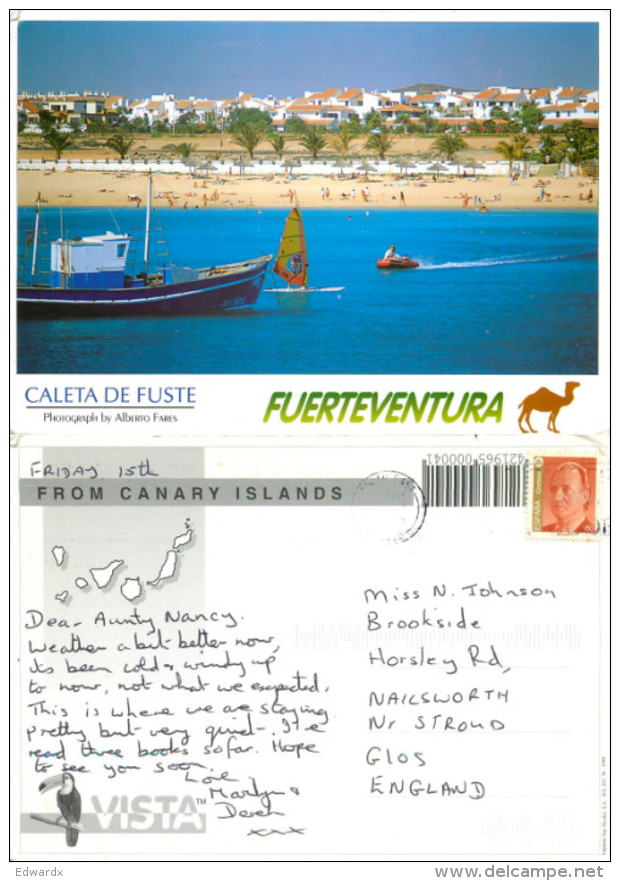 CALETA DE FUSTE
PHOTOGRAPH BY ALBERTO FARES
FUERTEVENTURA
FRIDAY 15th
FROM CANARY ISLANDS
421965 000041
ESPAÑA
Correos
Dear Aunty Nancy.
Weather a bit better now,
its been cold & windy up
to now, not what we expected.
This is where we are staying
pretty but very quiet. I've
read three books so far. Hope
to see you soon.
Love
Marlyn &
Derek
xxx
Miss N. Johnson
Brookside
Horsley Rd,
NAILSWORTH
Nr STROUD
GLOS
ENGLAND
VISTA™
Edwardx
www.delcampe.net